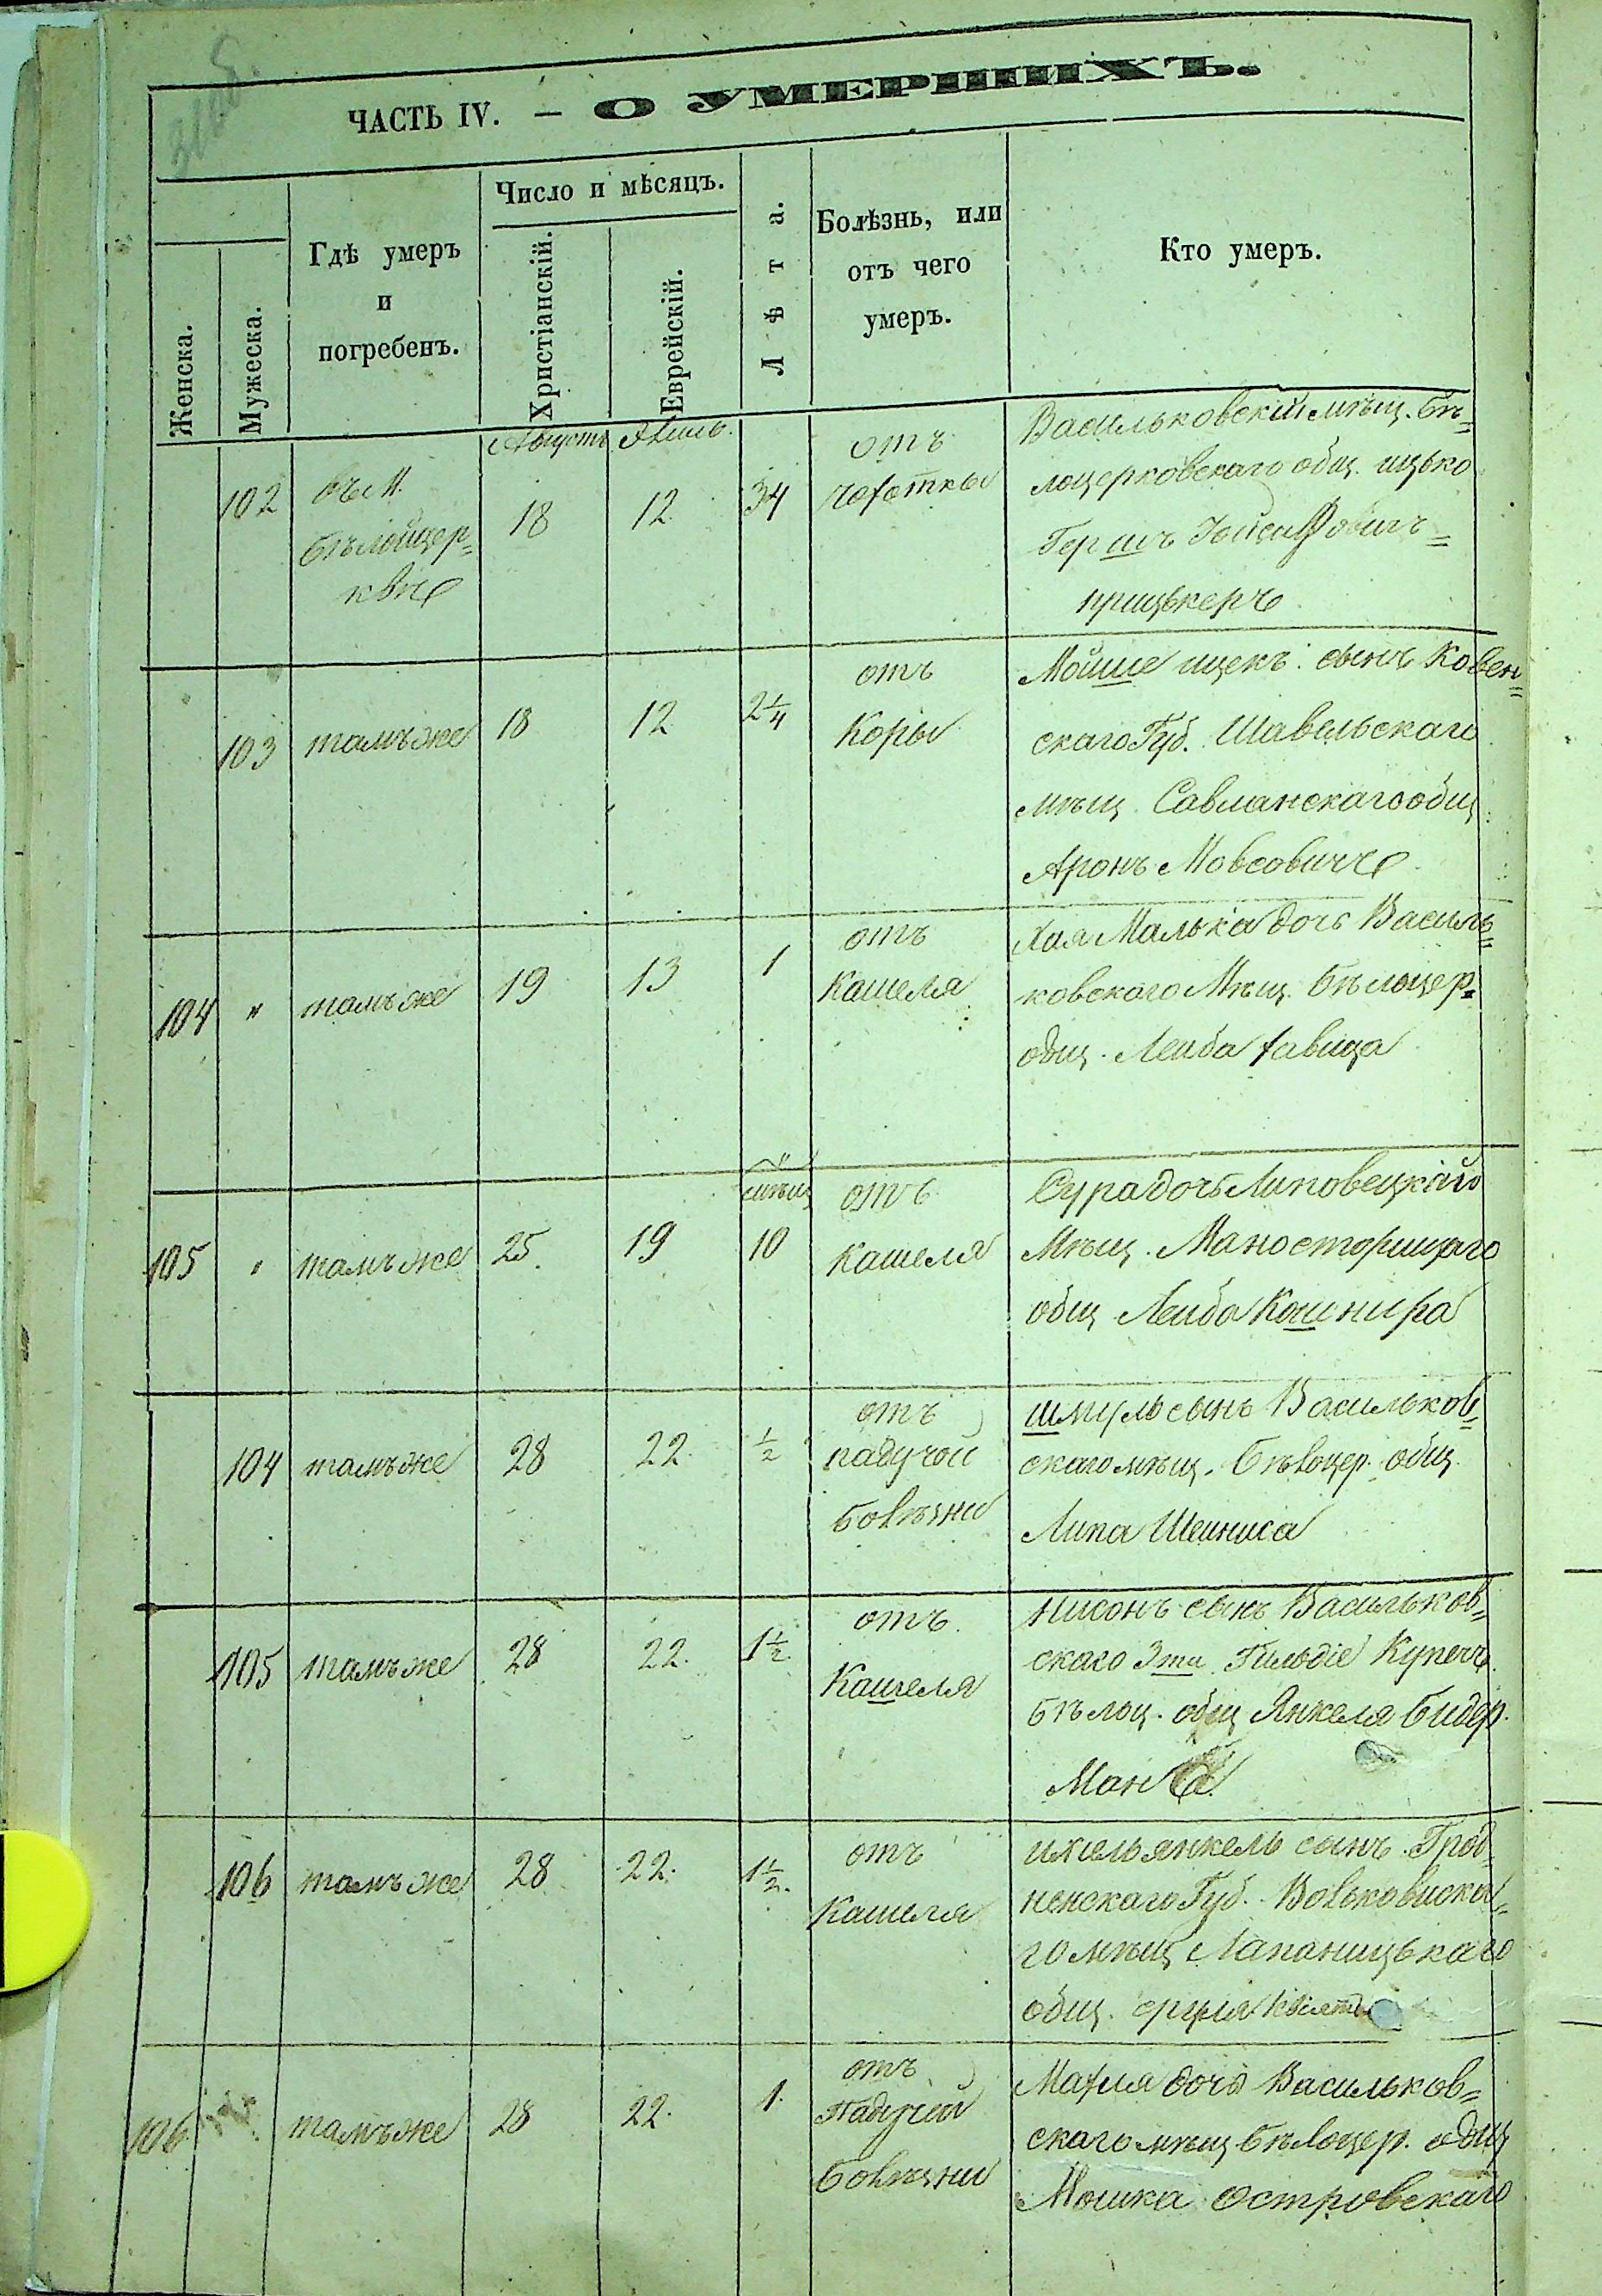 ЧАСТЬ IV. — О УМЕРШИХЪ.
Женска.
Мужеска.
Гдѣ умеръ
и
погребенъ.
Число и мѣсяцъ.
Христіанскій.
Еврейскій.
Лѣта.
Болѣзнь, или
отъ чего
умеръ.
Кто умеръ.
Августъ
102
въ М.
Бѣлойцер=
квѣ
18
12
34
отъ
чахотки
Васильковскій мѣщ. Бѣ=
лоцерковскаго общ. ицько
Гершъ Іойсифовичъ=
прицькеръ
103
тамъже
18
12
2 1/4
отъ
Коры
Мойше ицекъ сынъ Ковен=
скаго Губ. Шавельскаго
мѣщ. Савланскаго общ.
Аронъ Мовсовичъ
104
"
тамъже
19
13
1
отъ
Кашеля
Хая Малька дочь Василь=
ковскаго Мѣщ. Бѣлоцер=
общ. Лейба
105
"
тамъже
25
19
мѣсц
10
отъ
Кашеля
Сура дочь Липовецкаго
Мѣщ. Маностарищаго
общ Лейба Кошнира
104
тамъже
28
22.
1/2
отъ
падучой
болѣзни
Шмуль сынъ Васильков=
скаго мѣщ. Бѣлоцер. общ.
Липа Шейниса
105
тамъже
28
22.
1 1/2.
отъ
Кашеля
Нисонъ сынъ Васильков=
скаго 3ти Гильдіе Купечъ.
Бѣлоц. общ Янкеля Бидер.
Мана
106
тамъже
28
22.
1 1/2.
отъ
Кашеля
ихель янкель сынъ Грод=
ненскаго Губ. Волковиска=
го мѣщ Лапаницькаго
общ.
106
тамъже
28
22.
1.
отъ
Падучей
болѣзни
Махля дочь Васильков=
скаго мѣщ Бѣлоцер. общ
Мошка Островскаго